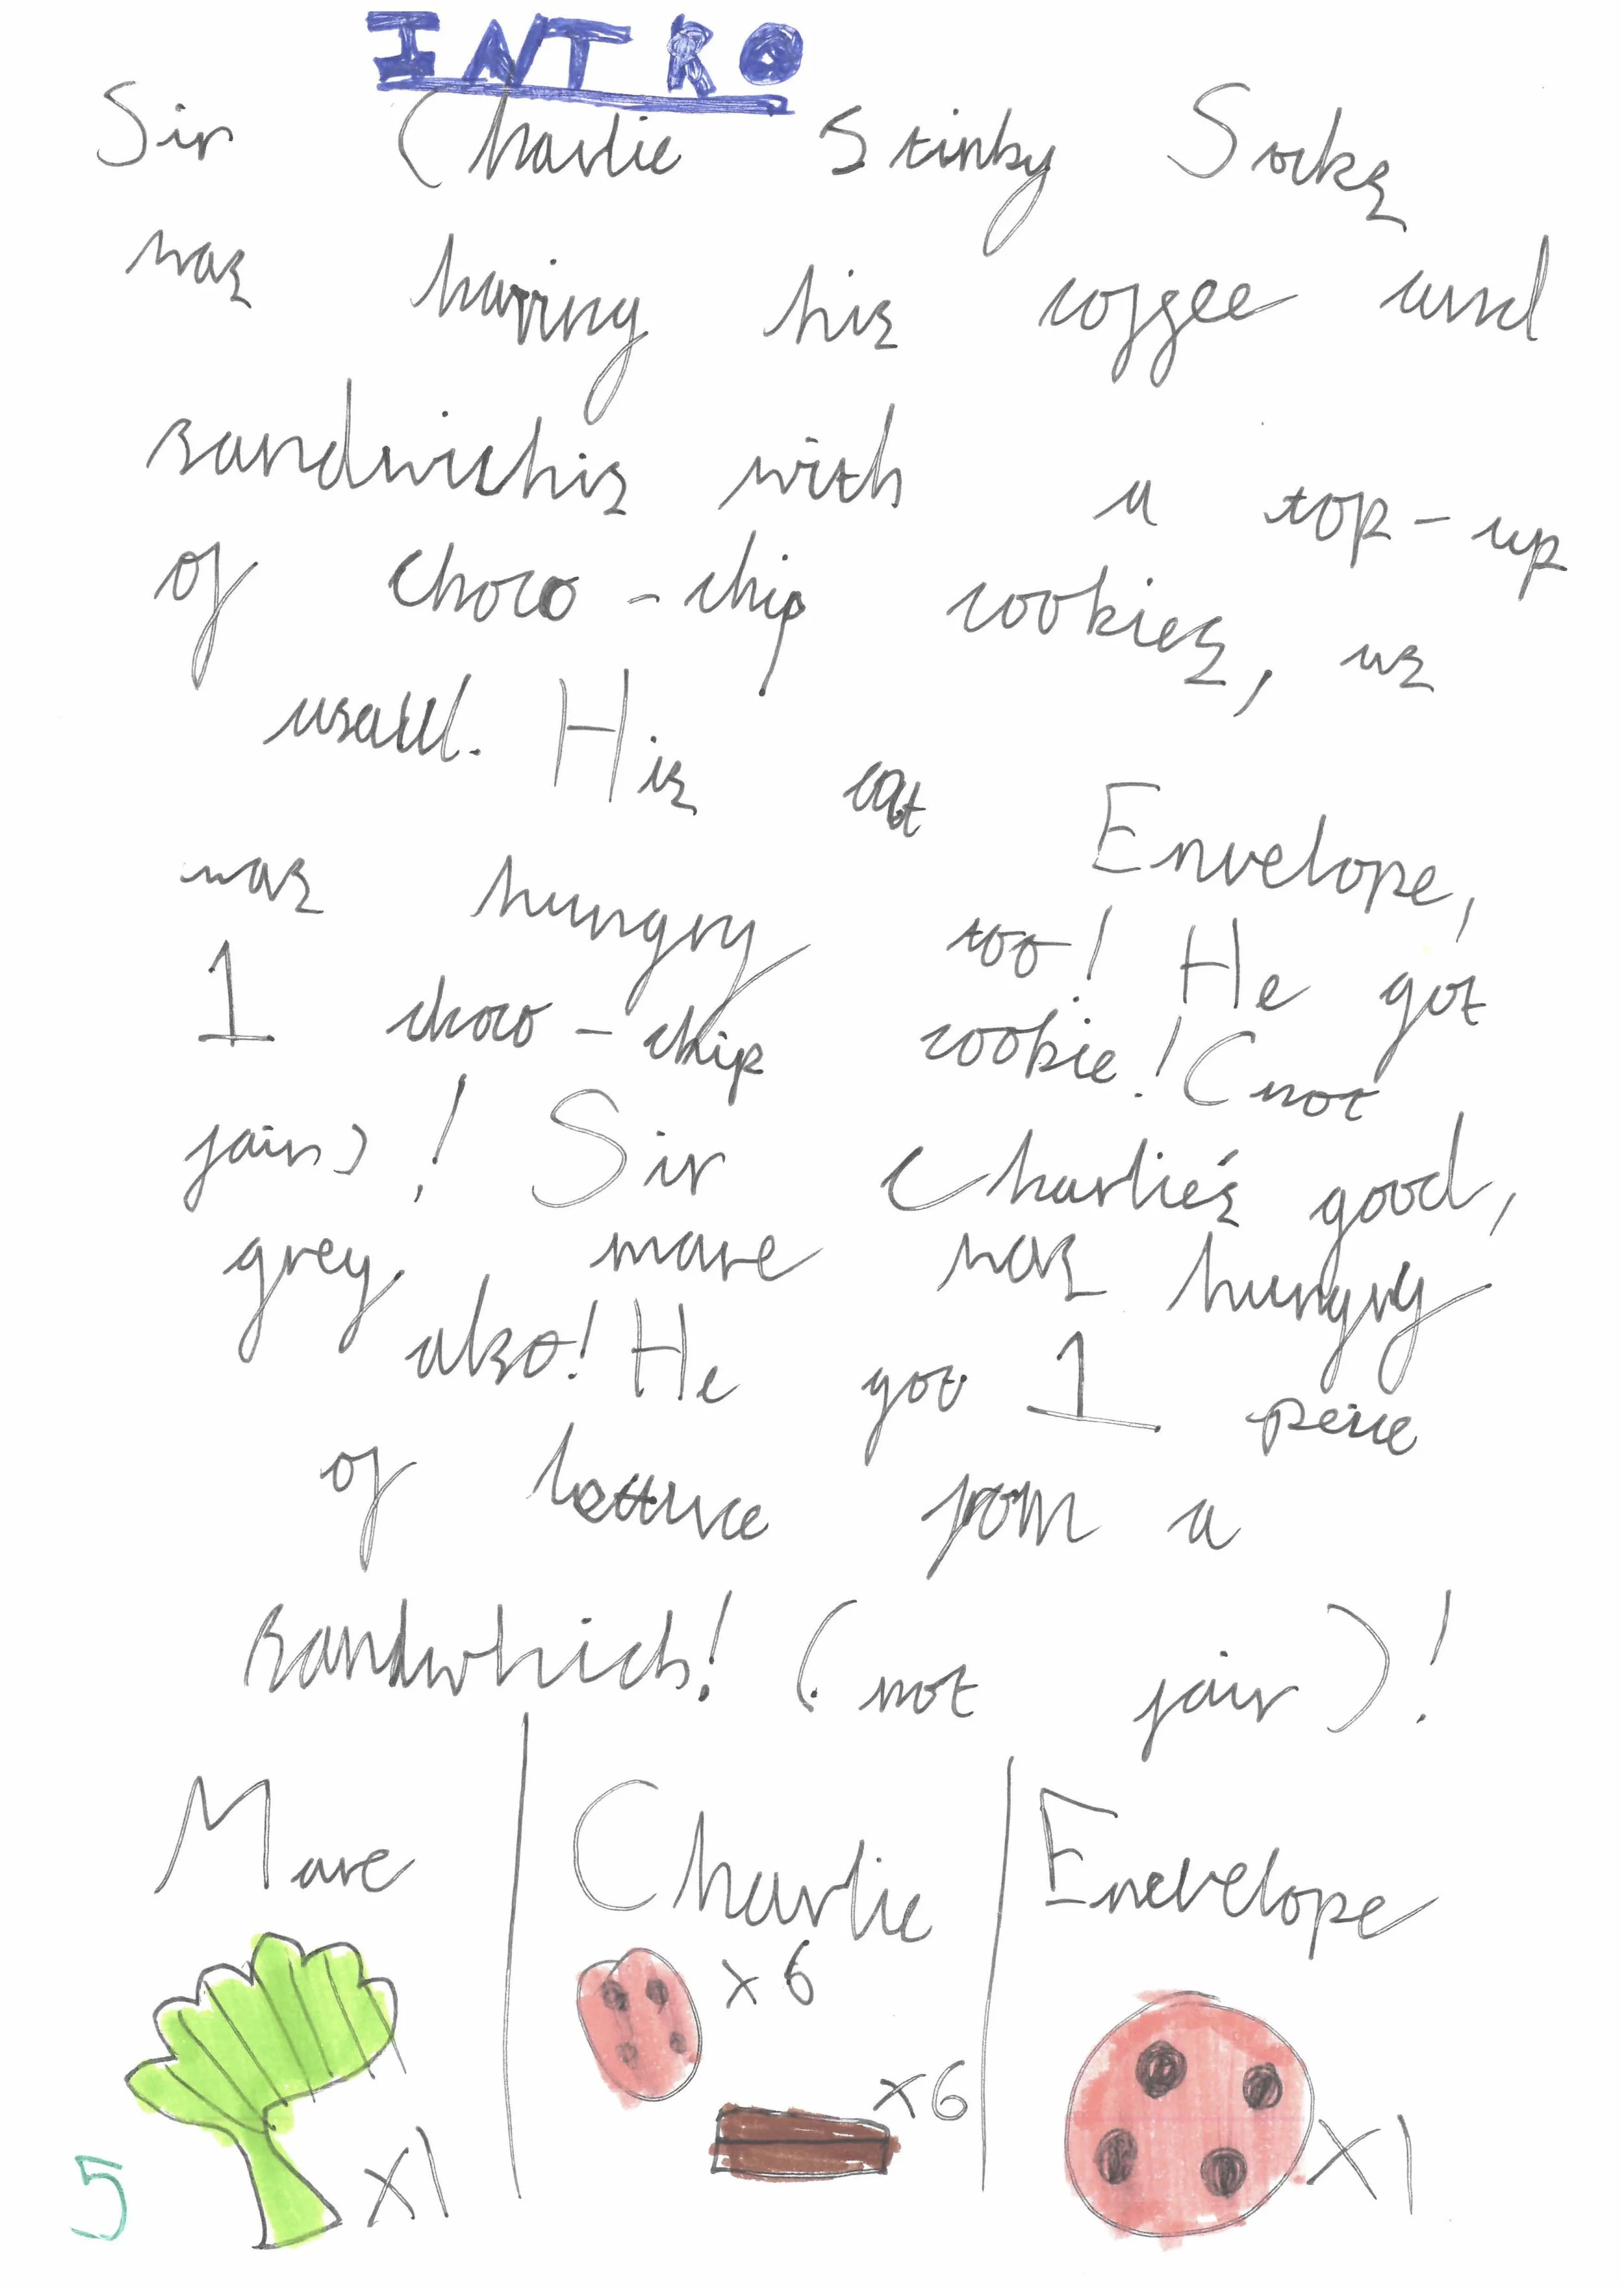 INTRO
Sir Charlie Stinky Socks
was having his coffee and
sandwichis with a top-up
of choco-chip cookies, as
usall. His cat Envelope,
was hungry too! He got
1 choco-chip cookie! (not
fair)! Sir Charlie's good,
grey, mare was hungry
also! He got 1 peice
of lettuce from a
sandwhich! (not fair)!
Mare Charlie Enevelope
x6
x6
x1 x1
5